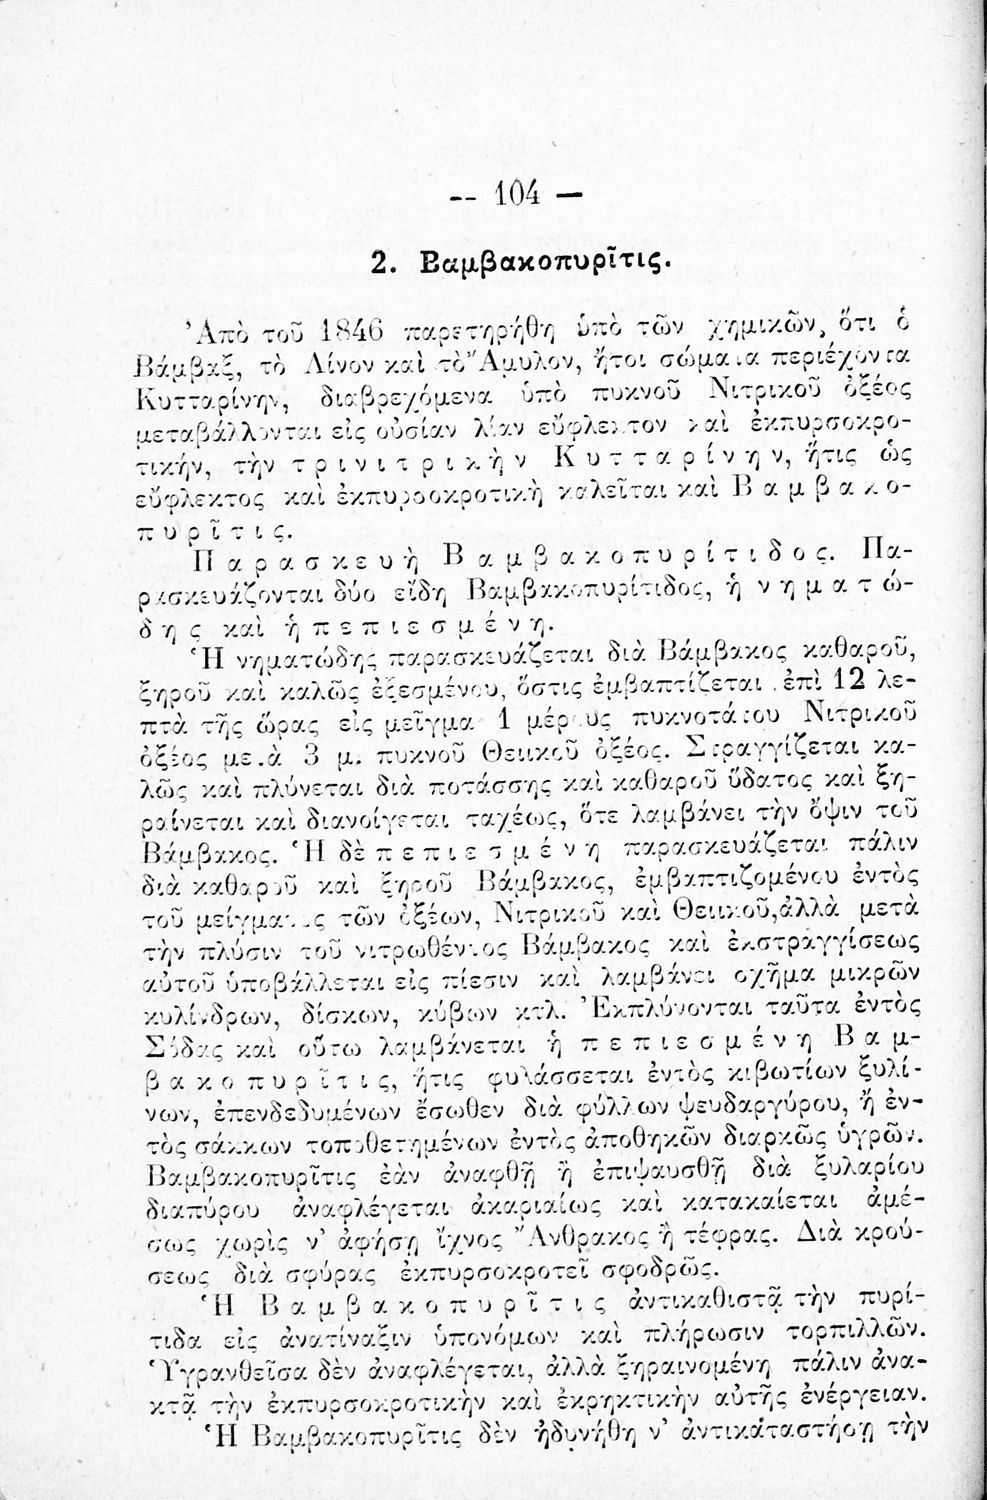 -- 104 —
2. Βαμβακοπυρῖτις.
Ἀπὸ τοῦ 1846 παρετηρήθη ὑπὸ τῶν χημικῶν, ὅτι ὁ
Βάμβαξ, τὸ Λίνον καὶ τὸ Ἄμυλον, ἤτοι σώματα περιέχοντα
Κυτταρίνην, διαβρεχόμενα ὑπὸ πυκνοῦ Νιτρικοῦ ὀξέος
μεταβάλλονται εἰς οὐσίαν λίαν εὔφλεκτον καὶ ἐκπυρσοκρο-
τικήν, τὴν τρινιτρικὴν Κυτταρίνην, ἥτις ὡς
εὔφλεκτος καὶ ἐκπυρσοκροτικὴ καλεῖται καὶ Βαμβακο-
πυρῖτις.
Παρασκευὴ Βαμβακοπυρίτιδος. Πα-
ρασκευάζονται δύο εἴδη Βαμβακοπυρίτιδος, ἡ νηματώ-
δης καὶ ἡ πεπιεσμένη.
Ἡ νηματώδης παρασκευάζεται διὰ Βάμβακος καθαροῦ,
ξηροῦ καὶ καλῶς ἐξεσμένου, ὅστις ἐμβαπτίζεται ἐπὶ 12 λε-
πτὰ τῆς ὥρας εἰς μεῖγμα 1 μέρους πυκνοτάτου Νιτρικοῦ
ὀξέος μετὰ 3 μ. πυκνοῦ Θειικοῦ ὀξέος. Στραγγίζεται κα-
λῶς καὶ πλύνεται διὰ ποτάσσης καὶ καθαροῦ ὕδατος καὶ ξη-
ραίνεται καὶ διανοίγεται ταχέως, ὅτε λαμβάνει τὴν ὄψιν τοῦ
Βάμβακος. Ἡ δὲ πεπιεσμένη παρασκευάζεται πάλιν
διὰ καθαροῦ καὶ ξηροῦ Βάμβακος, ἐμβαπτιζομένου ἐντὸς
τοῦ μείγματος τῶν ὀξέων, Νιτρικοῦ καὶ Θειικοῦ,ἀλλὰ μετὰ
τὴν πλύσιν τοῦ νιτρωθέντος Βάμβακος καὶ ἐκστραγγίσεως
αὐτοῦ ὑποβάλλεται εἰς πίεσιν καὶ λαμβάνει σχῆμα μικρῶν
κυλίνδρων, δίσκων, κύβων κτλ. Ἐκπλύνονται ταῦτα ἐντὸς
Σόδας καὶ οὕτω λαμβάνεται ἡ πεπιεσμένη Βαμ-
βακοπυρῖτις, ἥτις φυλάσσεται ἐντὸς κιβωτίων ξυλί-
νων, ἐπενδεδυμένων ἔσωθεν διὰ φύλλων ψευδαργύρου, ἢ ἐν-
τὸς σάκκων τοποθετημένων ἐντὸς ἀποθηκῶν διαρκῶς ὑγρῶν.
Βαμβακοπυρῖτις ἐὰν ἀναφθῇ ἢ ἐπιψαυσθῇ διὰ ξυλαρίου
διαπύρου ἀναφλέγεται ἀκαριαίως καὶ κατακαίεται ἀμέ-
σως χωρὶς ν' ἀφήσῃ ἴχνος Ἄνθρακος ἢ τέφρας. Διὰ κρού-
σεως διὰ σφύρας ἐκπυρσοκροτεῖ σφοδρῶς.
Ἡ Βαμβακοπυρῖτις ἀντικαθιστᾷ τὴν πυρί-
τιδα εἰς ἀνατίναξιν ὑπονόμων καὶ πλήρωσιν τορπιλλῶν.
Ὑγρανθεῖσα δὲν ἀναφλέγεται, ἀλλὰ ξηραινομένη πάλιν ἀνα-
κτᾷ τὴν ἐκπυρσοκροτικὴν καὶ ἐκρηκτικὴν αὐτῆς ἐνέργειαν.
Ἡ Βαμβακοπυρῖτις δὲν ἠδυνήθη ν' ἀντικαταστήσῃ τὴν